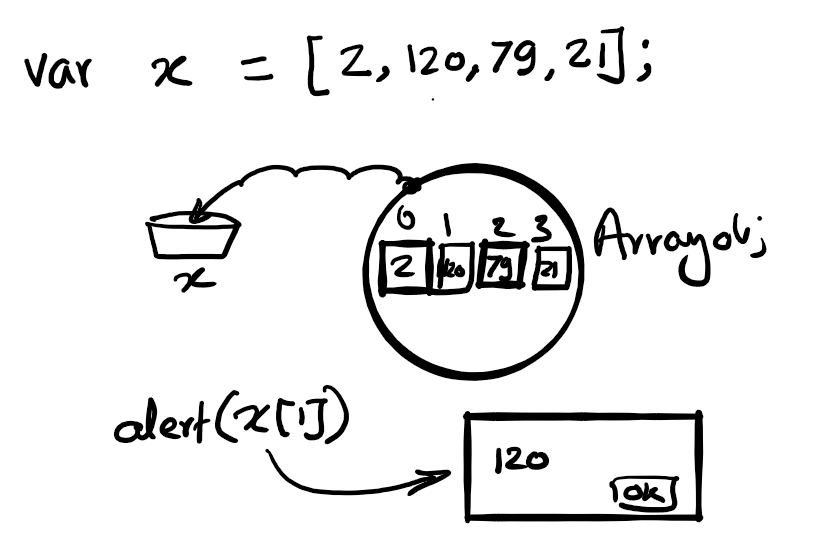 var x = [2, 120, 79, 21];
0 1 2 3
2 120 79 21
Array obj
x
alert(x[1])
120
ok